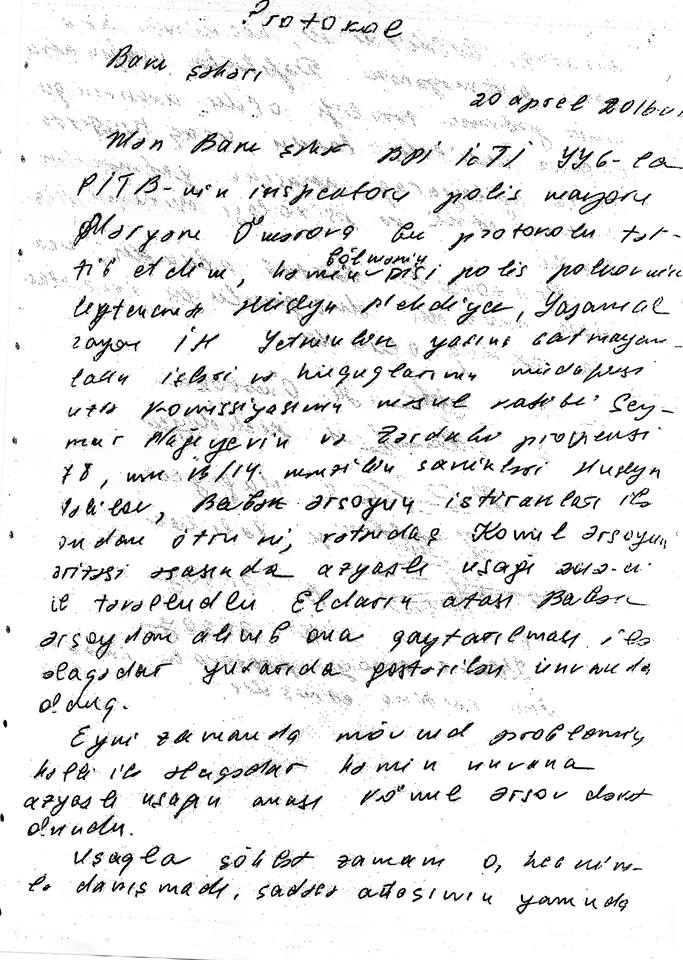 Protokol
Bakı şəhəri
20 aprel 2016-cı
Mən Bakı şəhər BPİ İƏTİ YYG-lə
PİTB-nin inspektoru polis mayoru
Məryəm Ömərova bu protokolu tər-
tib etdim, həmin bölmənin rəisi polis polkovnik
leytenantı Hüseyn Mehdiyev, Yasamal
rayon İH Yetkinlik yaşına çatmayan-
ların işləri və hüquqlarının müdafiəsi
üzrə Komissiyasının məsul katibi Sey-
mur Nağıyevin və Zərdabi prospekti
78, mən sakinləri Hüseyn
Babək Ərsoyun iştirakları ilə
ondan ötrü ki, vətəndaş Könül Ərsoyun
ərizəsi əsasında azyaşlı uşağı
il təvəllüdlü Eldarın atası Babək
Ərsoydan alınıb ona qaytarılması ilə
əlaqədar yuxarıda göstərilən ünvanda
olduq.
Eyni zamanda mövcud problemin
həlli ilə əlaqədar həmin ünvana
azyaşlı uşağın anası Könül Ərsoy dəvət
olundu.
Uşaqla söhbət zamanı o, heç kim-
lə danışmadı, sadəcə atasının yanında